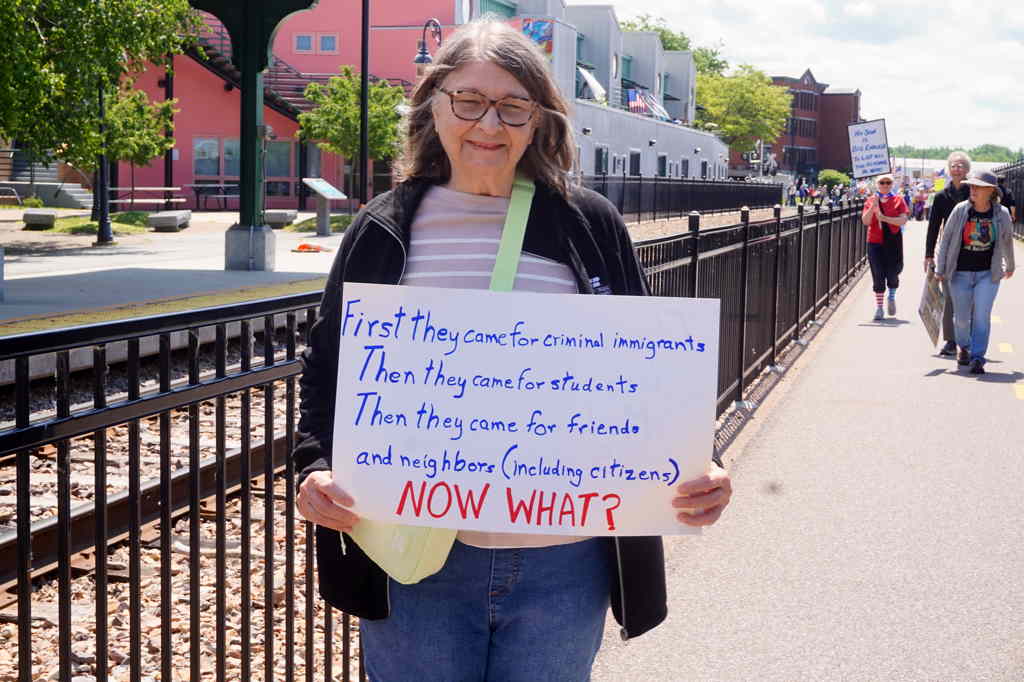 First they came for criminal immigrants
Then they came for students
Then they came for friends
and neighbors (including citizens)
NOW WHAT?